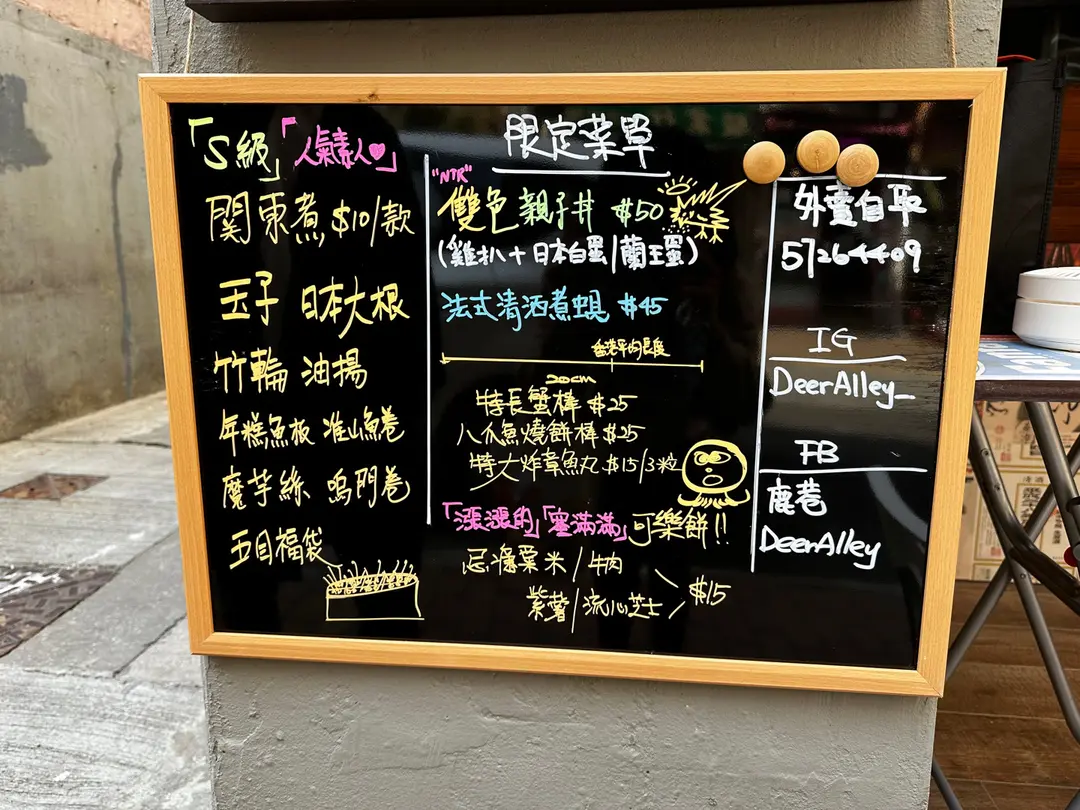 「S級」「人氣素人」
関東煮 $10/款
玉子 日本大根
竹輪 油揚
年糕魚板 淮山魚卷
魔芋絲 鳴門卷
五目福袋
限定菜單
"NTR"
雙色親子丼 $50
(雞扒+日本白蛋/蘭王蛋)
法式清酒煮蜆 $45
香港平均長度
20cm
特長蟹棒 $25
八爪魚燒餅棒 $25
特大炸章魚丸 $15/3粒
「漲漲的」「蜜滿滿」可樂餅!!
忌廉粟米/牛肉
紫薯/流心芝士
$15
外賣自取
57264409
IG
DeerAlley_
FB
鹿巷
DeerAlley